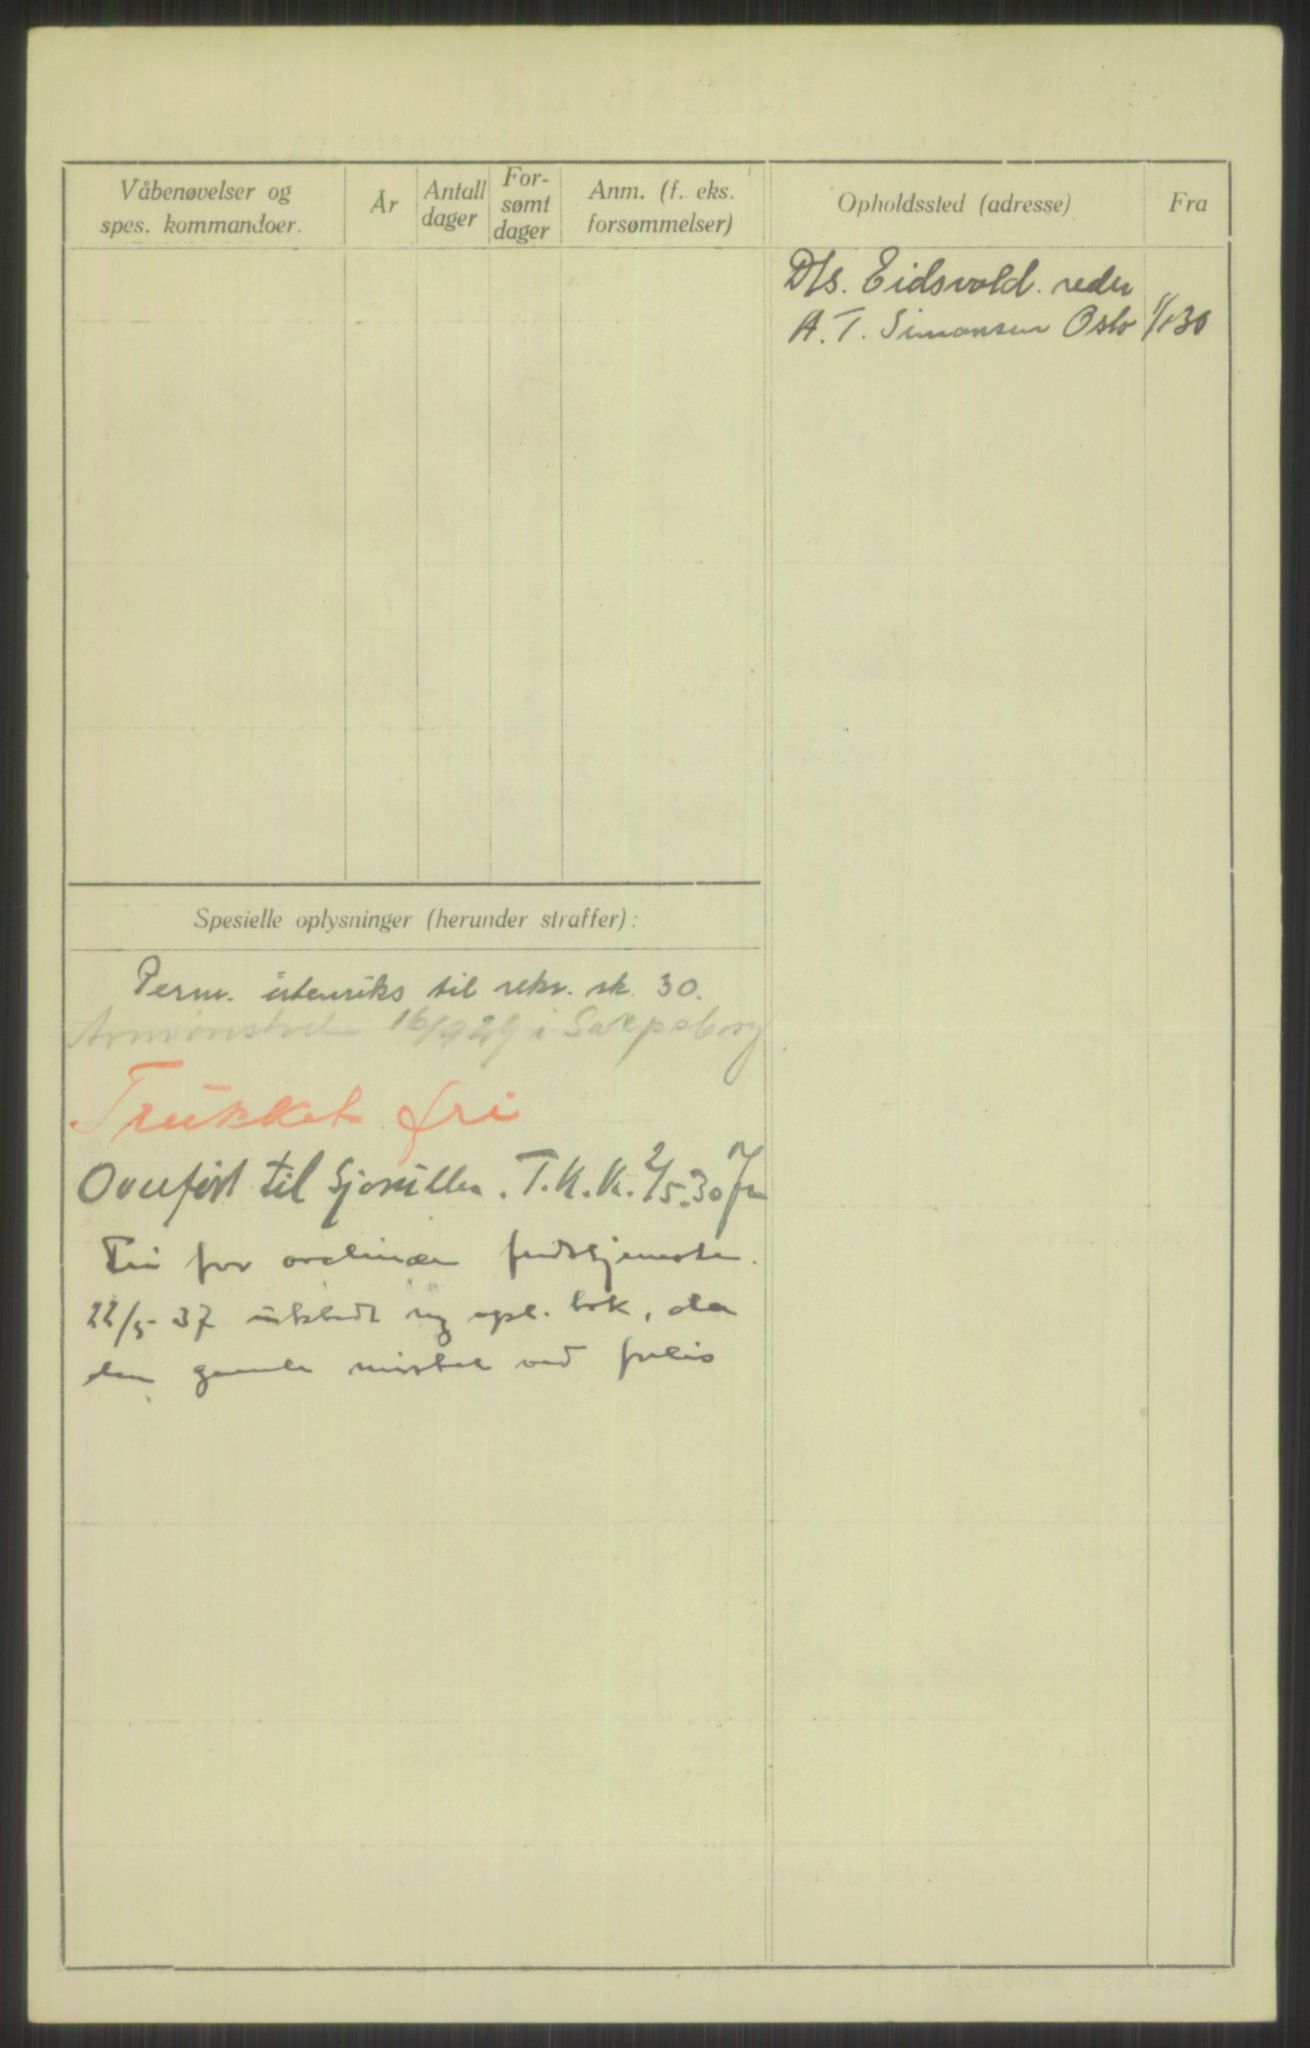 Våbenøvelser og
spes. kommandoer.
År
Antall
dager
For-
sømt
dager
Anm. (f. eks.
forsømmelser)
Opholdssted (adresse)
Fra
D/s. Eidsvold. reder
A. T. Simonsen Oslo 1/1 30
Spesielle oplysninger (herunder straffer):
Perm. utenriks til rekr. sk. 30.
Avmønstret 16/9 29 i Sarpsborg
Trukket fri
Overført til Sjørullen. T.K.K. 2/5.30
Fri for ordinær fredstjeneste.
22/5-37 utstedt ny opl. bok, da
den gamle mistet ved forlis